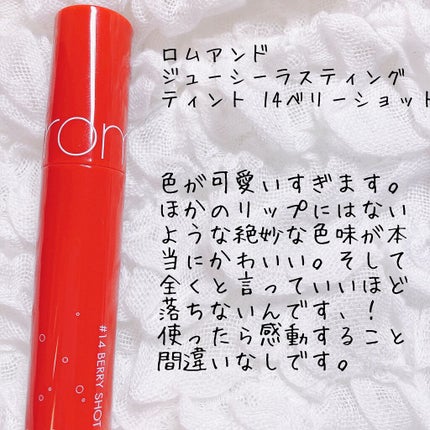 ロムアンド
ジューシーラスティング
ティント 14ベリーショット
色が可愛いすぎます。
ほかのリップにはない
ような絶妙な色味が本
当にかわいい。そして
全くと言っていいほど
落ちないんです、！
使ったら感動すること
間違いなしです。
rom
#14 BERRY SHOT